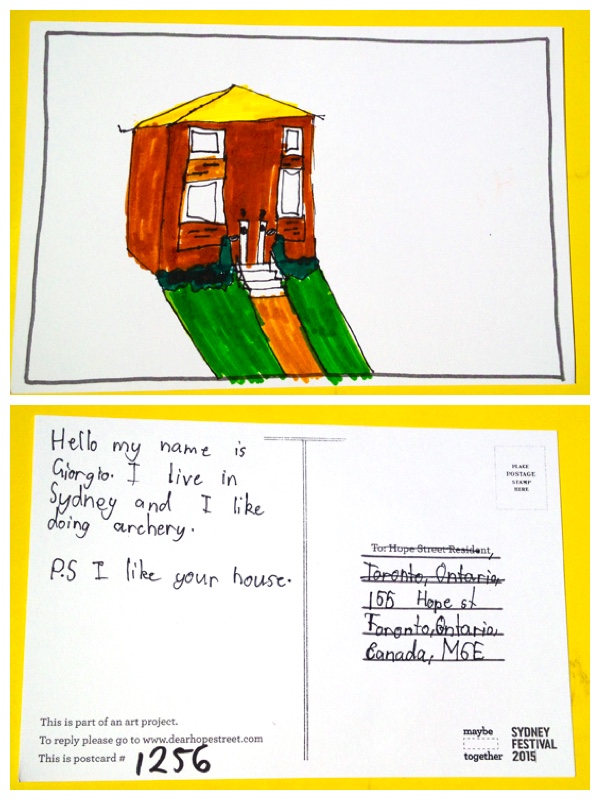 Hello my name is
Giorgio. I live in
Sydney and I like
doing archery.
P.S I like your house.
This is part of an art project.
To reply please go to www.dearhopestreet.com
This is postcard # 1256
PLACE
POSTAGE
STAMP
HERE
To: Hope Street Resident,
Toronto, Ontario,
155 Hope st
Toronto, Ontario,
Canada, M6E
maybe
together
SYDNEY
FESTIVAL
2015